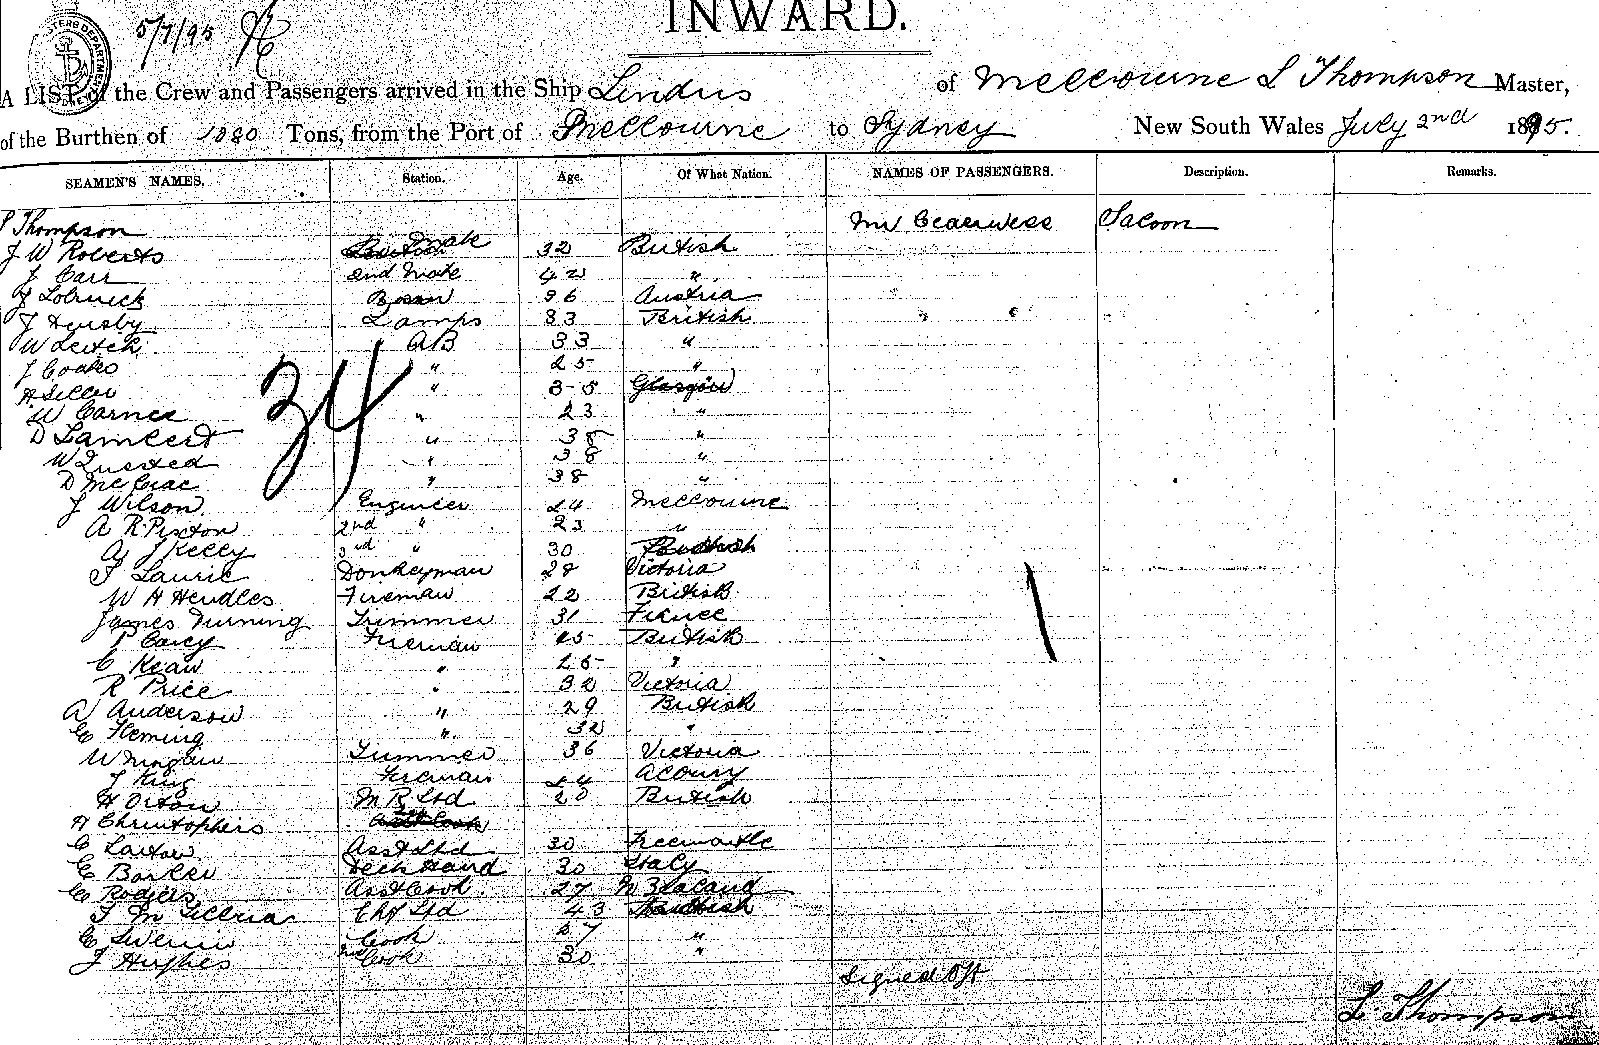 5/7/95
INWARD.
A LIST of the Crew and Passengers arrived in the Ship Lindus of Melbourne L Thompson Master,
of the Burthen of 1080 Tons, from the Port of Melbourne to Sydney New South Wales July 2nd 1895.
SEAMEN'S NAMES. Station. Age. Of What Nation. NAMES OF PASSENGERS. Description. Remarks.
Thompson Mr Saloon
J W Roberts Mate 32 British
J Carr 2nd Mate 42 "
Bosan 36 Austria
J Hensby Lamps 33 British
W Leitch AB 33 "
J Coaks " 25 "
A Seller " 35 Glasgow
W Carnee " 23 "
D Lambert " 38 "
W Quested " 38 "
D McCrae " 38 "
J Wilson Engineer 24 Melbourne
A R Pixton 2nd " 23 "
A J Kelly 3rd " 30 British
Laurie Donkeyman 28 Victoria
W H Hendles Fireman 22 British
James Turning Trimmer 31 France
P Carey Fireman 45 British
C Kean " 25 "
R Price " 32 Victoria
A Anderson " 29 British
C Fleming " 32 "
W Trimmer 36 Victoria
J King Fireman 24 Albury
H Orton M R Std 20 British
A Christophers
C Asst Std 30 Freemantle
C Barker Deck Hand 30 Italy
C Rodgers Asst Cook 27 N Zealand
Ch Std 43 British
C Cook 27 "
J Hughes 2nd Cook 30 "
34
Signed Off
L Thompson